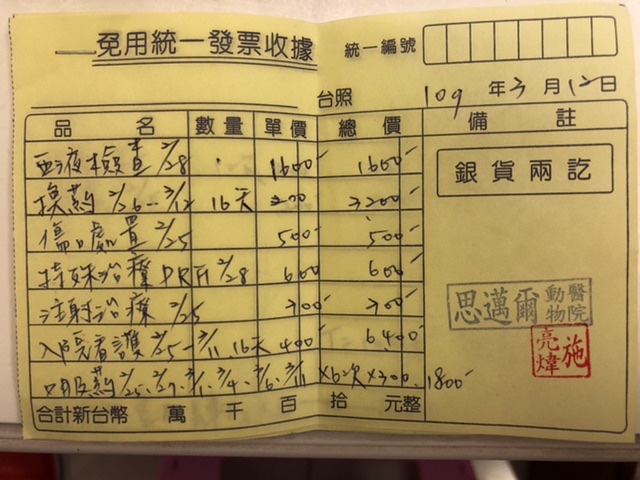 免用統一發票收據
統一編號
台照
109年3月12日
品名 數量 單價 總價 備註
血液檢查 2/28 1600 1600
換葯 2/26-3/12 16天 200 3200
傷口處置 2/25 500 500
特殊治療 PRF 2/28 600 600
注射治療 2/25
入院看護 2/25-3/11 16天 400 6400
口服葯 2/25. 2/27. 3/1. 3/4. 3/6. 3/11 ×6次×300. 1800
合計新台幣 萬 千 百 拾 元整
銀貨兩訖
思邁爾動物醫院
施亮煒